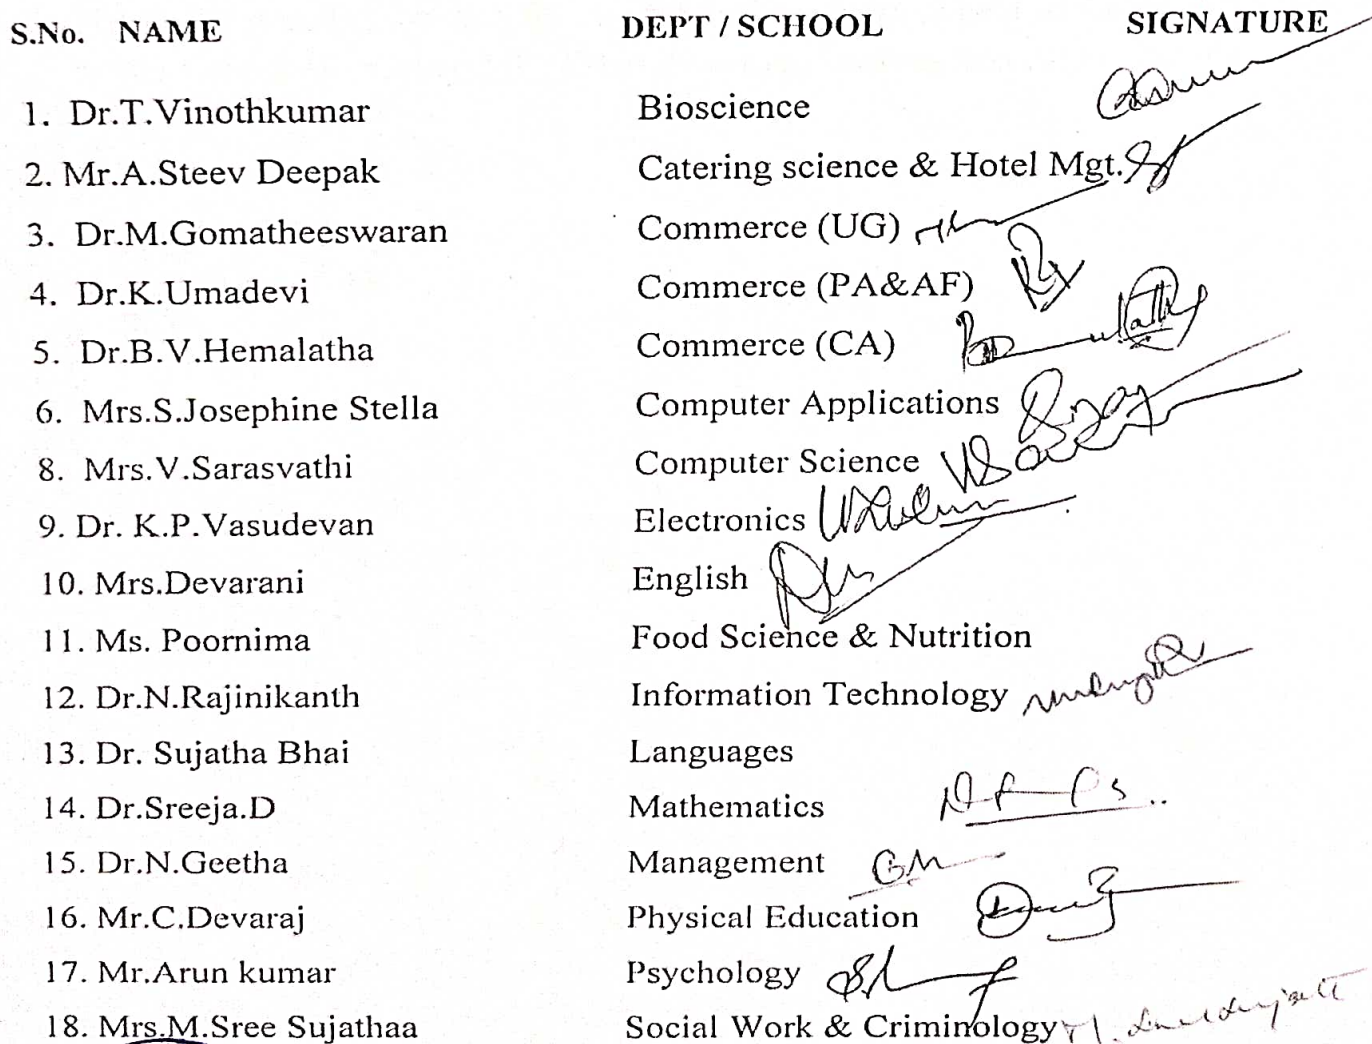 S.No. NAME DEPT / SCHOOL SIGNATURE
1. Dr.T.Vinothkumar Bioscience
2. Mr.A.Steev Deepak Catering science & Hotel Mgt.
3. Dr.M.Gomatheeswaran Commerce (UG)
4. Dr.K.Umadevi Commerce (PA&AF)
5. Dr.B.V.Hemalatha Commerce (CA)
6. Mrs.S.Josephine Stella Computer Applications
8. Mrs.V.Sarasvathi Computer Science
9. Dr. K.P.Vasudevan Electronics
10. Mrs.Devarani English
11. Ms. Poornima Food Science & Nutrition
12. Dr.N.Rajinikanth Information Technology
13. Dr. Sujatha Bhai Languages
14. Dr.Sreeja.D Mathematics
15. Dr.N.Geetha Management
16. Mr.C.Devaraj Physical Education
17. Mr.Arun kumar Psychology
18. Mrs.M.Sree Sujathaa Social Work & Criminology